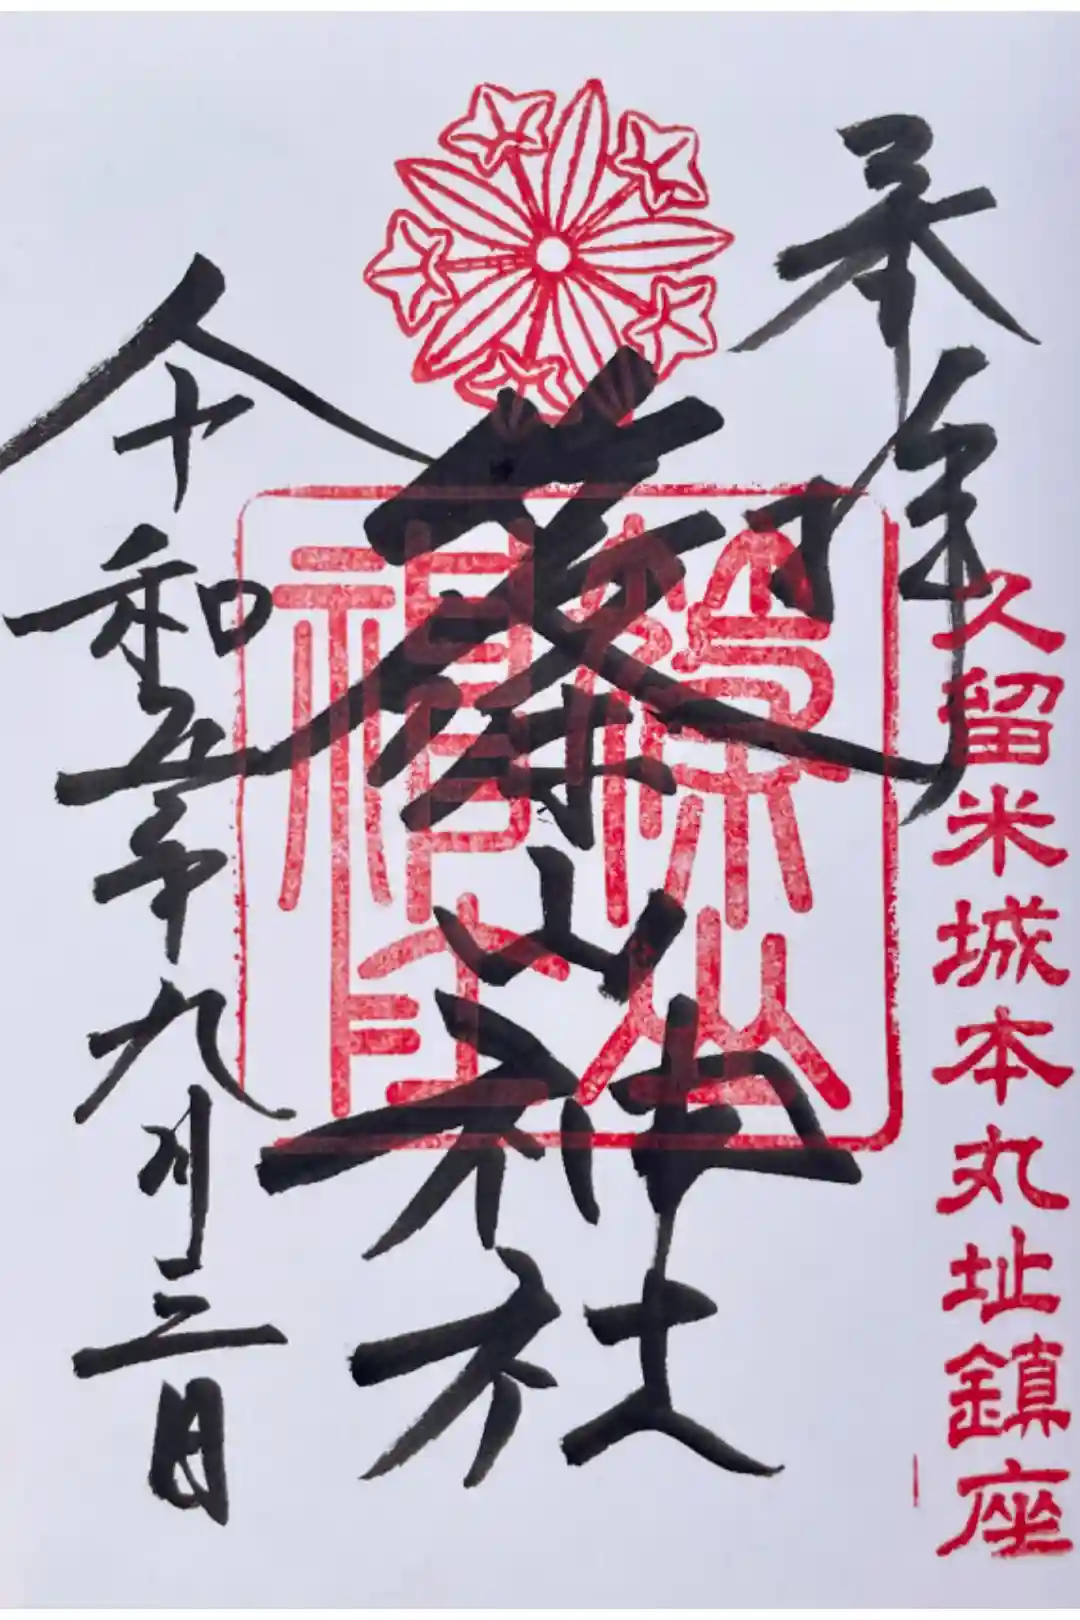 奉拝
久留米城本丸址鎮座
篠山神社
令和五年九月二日